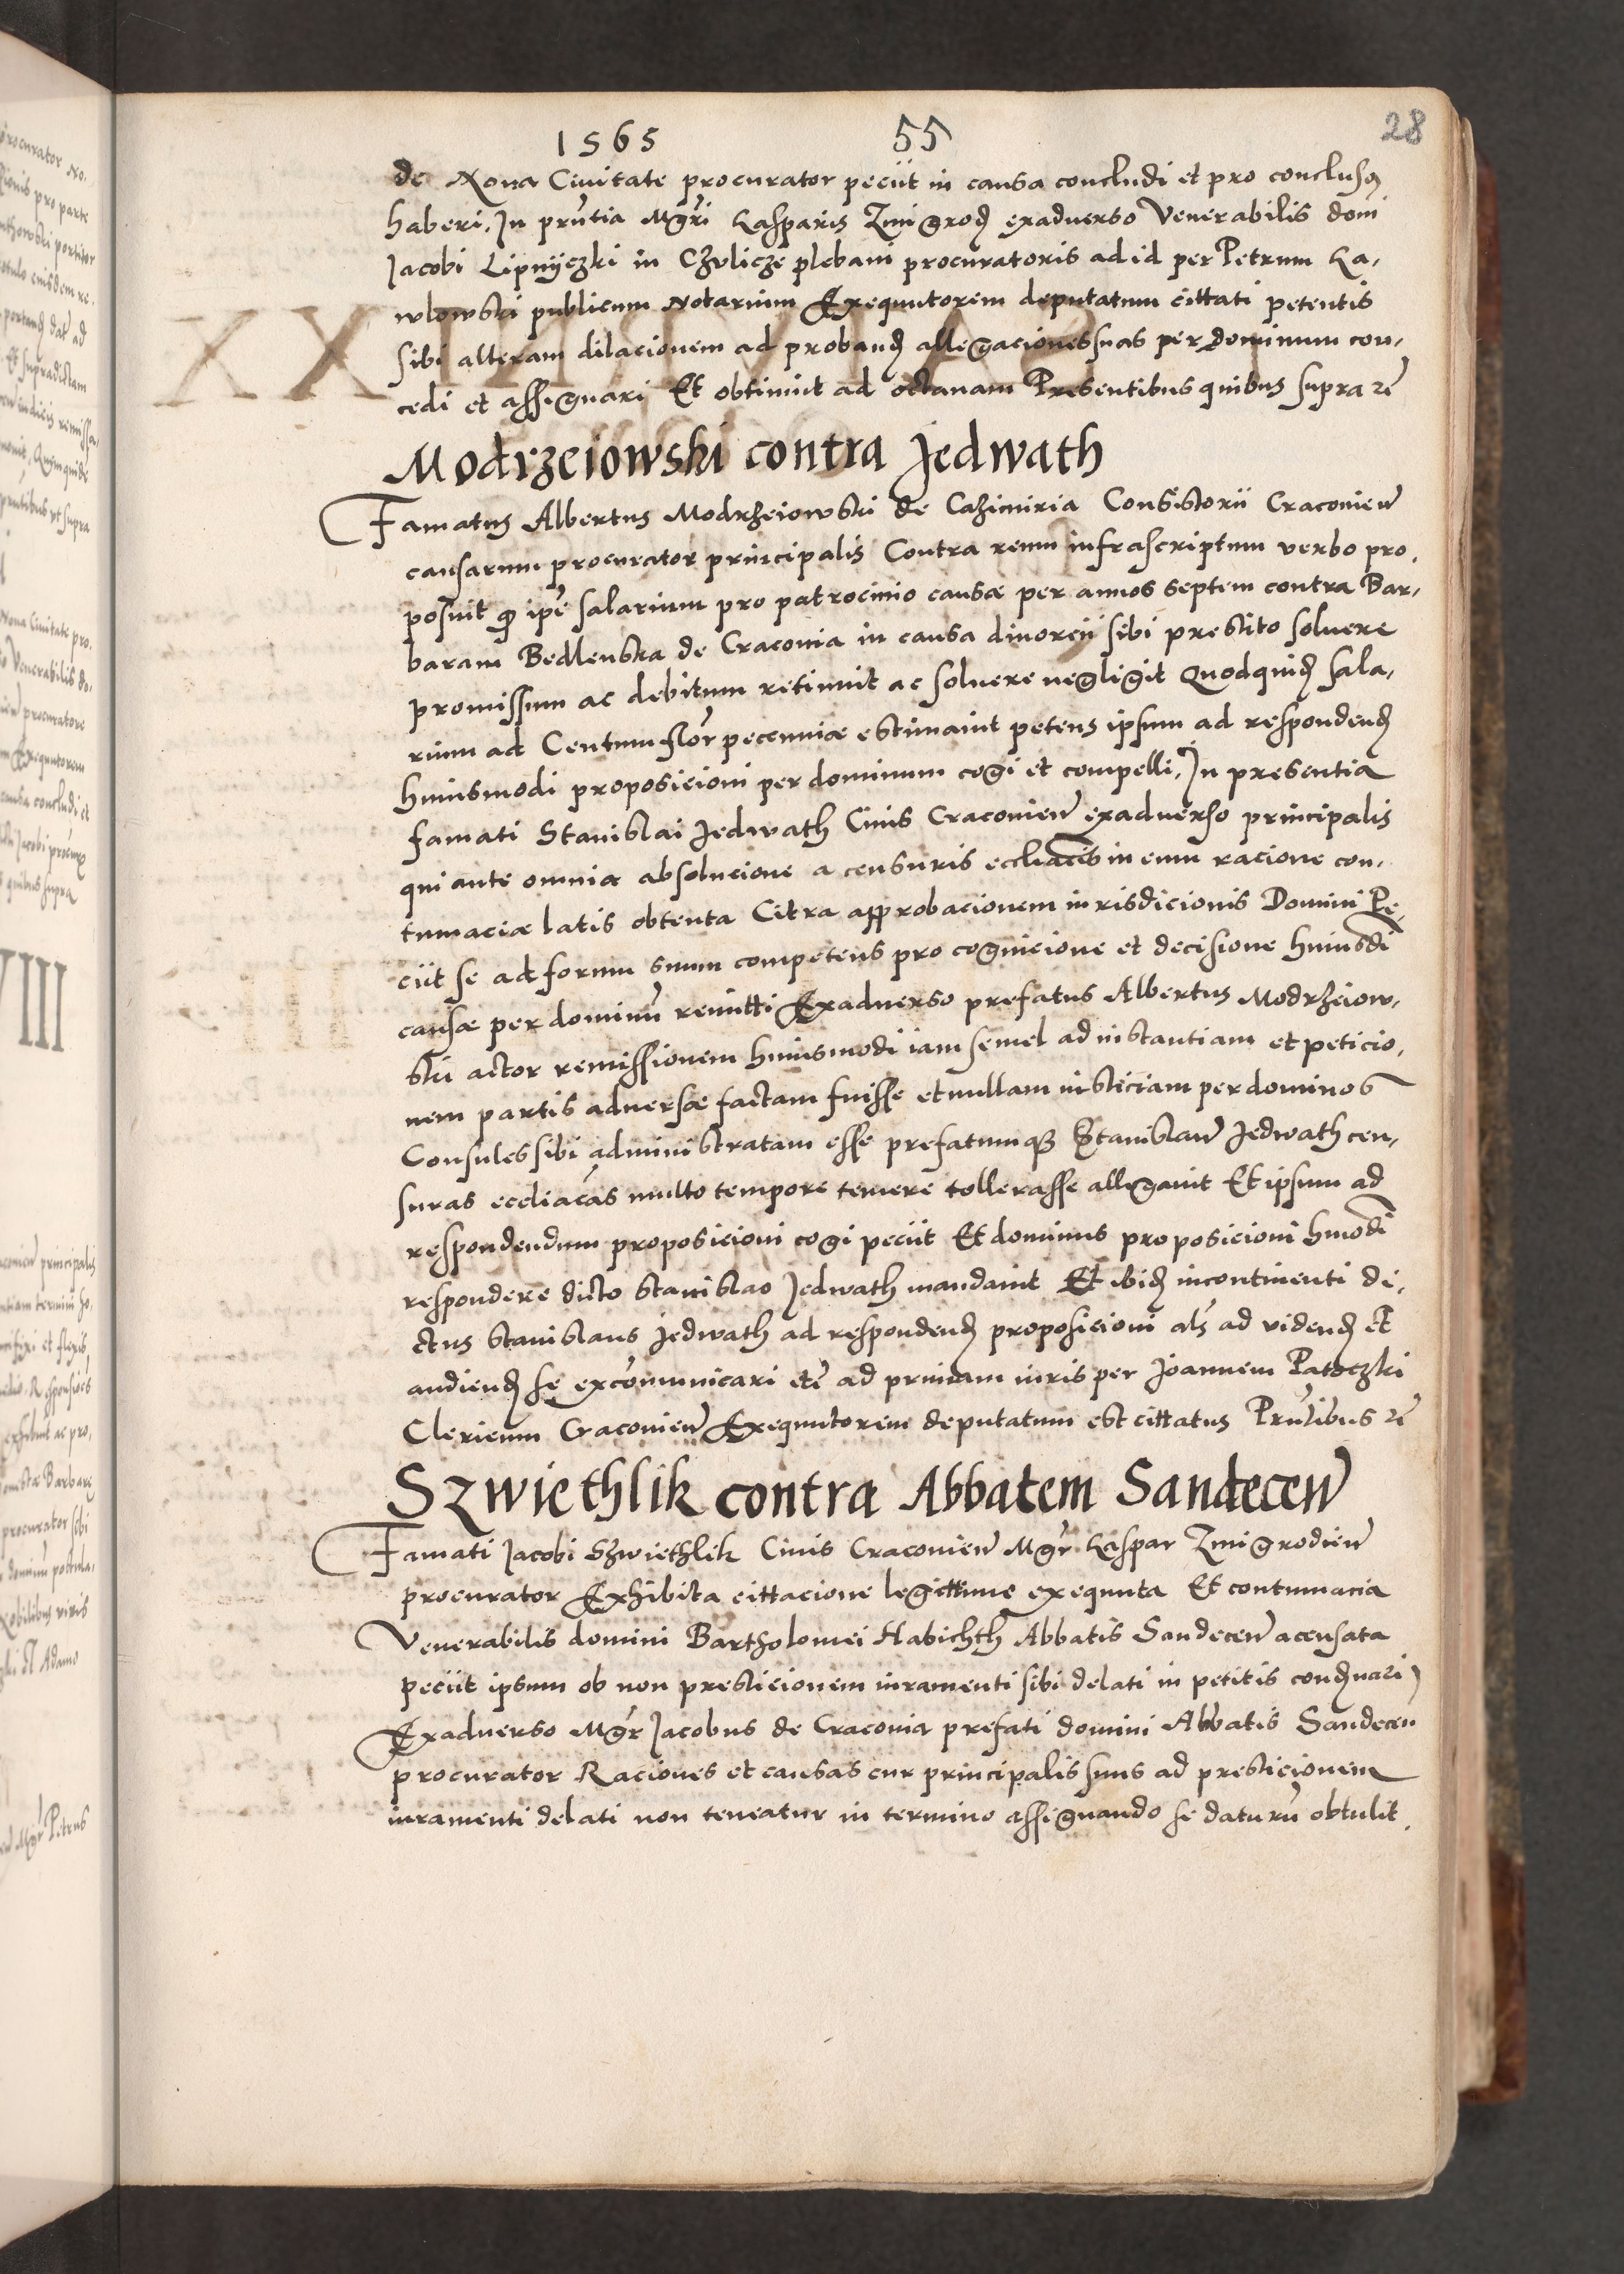 1565 55 28
de Noua Ciuitate procurator peciit in causa concludi et pro concluso
haberi, In pñtia Mgri Kasparis Zmigrod exaduerso Venerabilis domi
Jacobi Lipnyczki in Czulicze plebani procuratoris ad id per Petrum Ka,
wlowski publicum Notarium Exequutorem deputatum cittati petentis
sibi alteram dilacionem ad proband allegaciones suas per dominum con,
cedi et assignari Et obtinuit ad octauam Presentibus quibus supra etc
Modrzeiowski contra Jedwath
Famatus Albertus Modrzeiowski de Cazimiria Consistorii Cracouien
causarum procurator principalis Contra reum infrascriptum verbo pro,
posuit q ipe salarium pro patrocinio causæ per annos septem contra Bar,
baram Bedlenska de Cracouia in causa diuorcii sibi prestito soluere
promissum ac debitum retinuit ac soluere negligit Quodquid sala,
rium ad Centum flor pecuniæ estimauit petens ipsum ad respondend
huiusmodi proposicioni per dominum cogi et compelli, In presentia
famati Stanislai Jedwath Ciuis Cracouien exaduerso principalis
qui ante omnia absolucione a censuris eccliacis in eum racione con,
tumaciæ latis obtenta Citra approbacionem iurisdicionis Domini Pe,
ciit se ad forum suum competens pro cognicione et decisione huiusdi
causæ per dominu remitti Exaduerso prefatus Albertus Modrzeiow,
ski actor remissionem huiusmodi iam semel ad instantiam et peticio,
nem partis aduersæ factam fuisse et nullam iusticiam per dominos
Consules sibi administratam esse prefatumq Stanislau Jedwath cen,
suras eccliacas multo tempore temere tollerasse allegauit Et ipsum ad
respondendum proposicioni cogi peciit Et dominus proposicioni hmodi
respondere dicto Stanislao Jedwath mandauit Et ibid incontinenti di,
ctus Stanislaus Jedwath ad respondend proposicioni als ad vidend et
audiend se excomunicari etc ad primam iuris per Joannem Patoczki
Clericum Cracouien Exequutorem deputatum est cittatus Pñtibus etc
Szwiethlik contra Abbatem Sandecen
Famati Jacobi Szwiethlik Ciuis Cracouien Mgr Kaspar Zmigrodien
procurator Exhibita cittacione legittime exequuta Et contumacia
Venerabilis domini Bartholomei Habichth Abbatis Sandecen acusata
peciit ipsum ob non presticionem iuramenti sibi delati in petitis condnari
Exaduerso Mgr Jacobus de Cracouia prefati domini Abbatis Sandecen
procurator Raciones et causas cur principalis suus ad presticionem
iuramenti delati non teneatur in termino assignando se daturu obtulit.